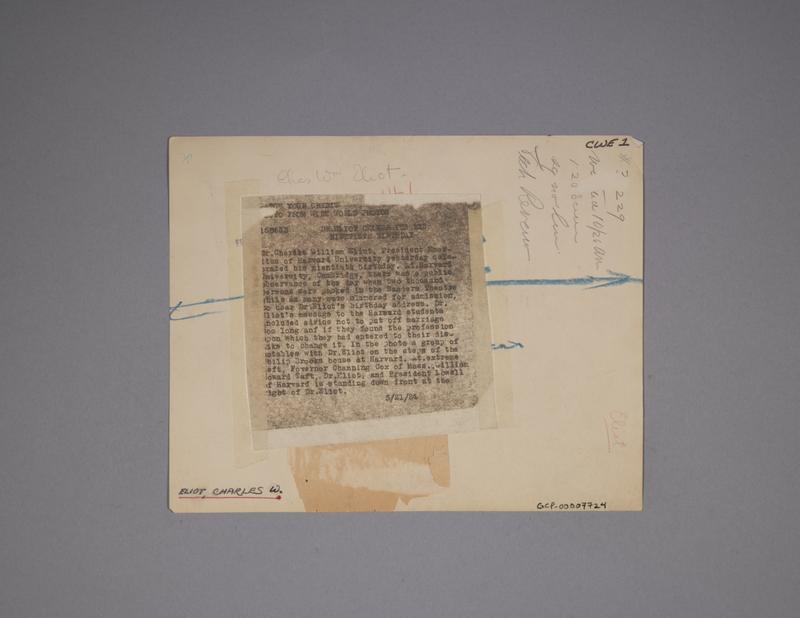 CWE 1
Chas Wm Eliot -
229
Tech Review
YOUR CREDIT
FROM WIDE WORLD PHOTOS
DR.ELIOT CELEBRATES HIS
NINETIETH BIRTHDAY.
Dr.Charles William Eliot, President Emer-
itus of Harvard University yesterday cele-
brated his ninetieth birthday. At Harvard
University, Cambridge, there was a public
observance of the day when two thousand
persons were packed in the Sanders Theatre
while as many more clamored for admission,
to hear Dr.Eliot's birthday address. Dr.
Eliot's message to the Harvard students
included advice not to put off marriage
too long anf if they found the profession
upon which they had entered to their dis-
like to change it. In the photo a group of
notables with Dr.Eliot on the steps of the
Philip Brooks house at Harvard. At extreme
left, Fovernor Channing Cox of Mass., William
Howard Taft, Dr.Eliot, and President Lowell
of Harvard is standing down front at the
right of Dr.Eliot.
3/21/24
Eliot
ELIOT, CHARLES W.
GCP-00007724